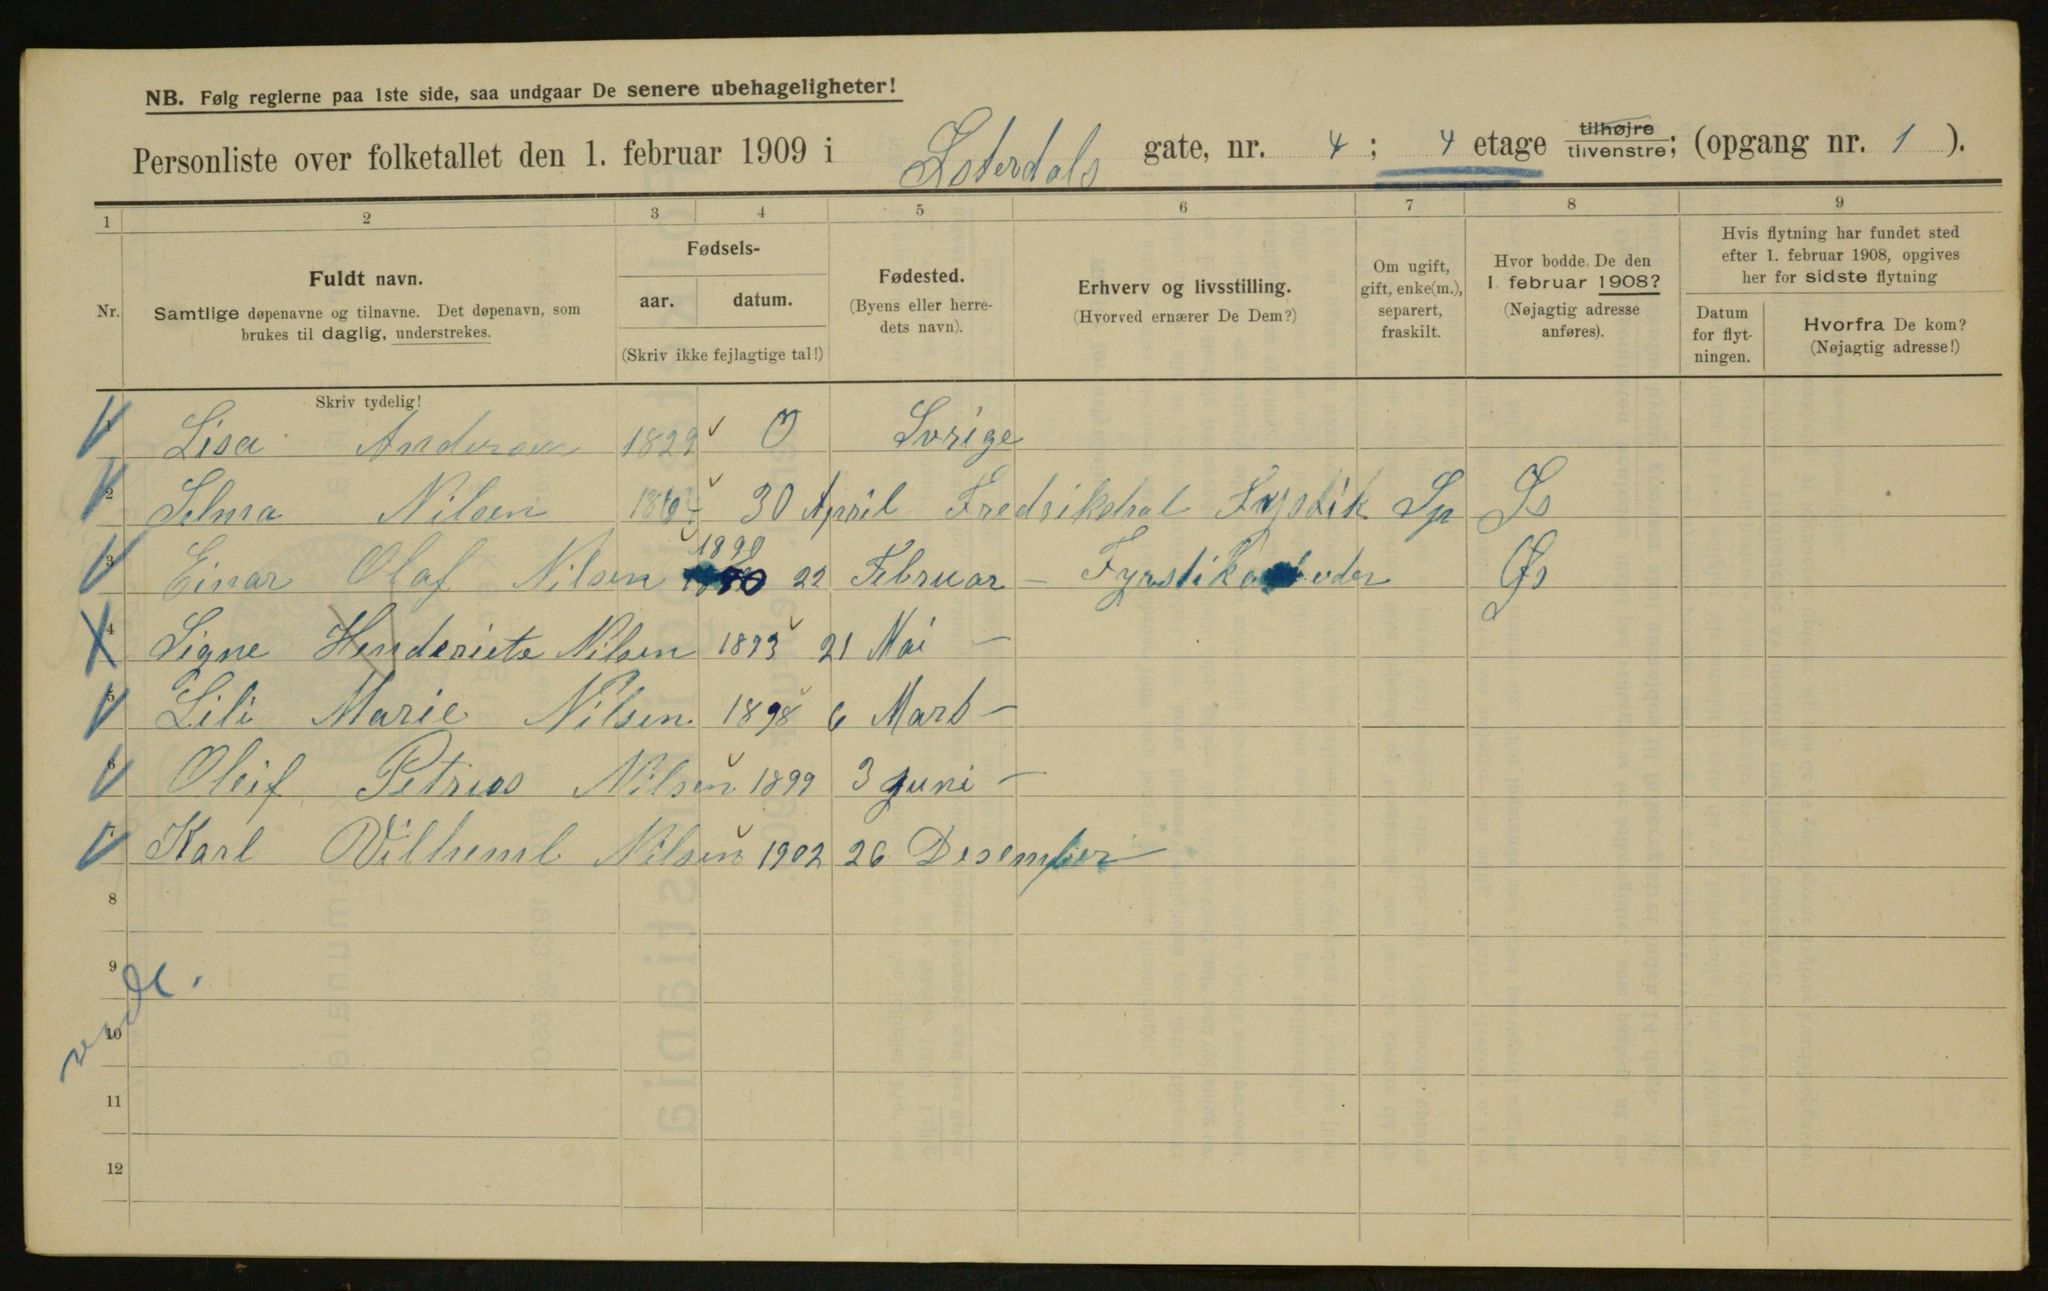 NB. Følg reglerne paa 1ste side, saa undgaar De senere ubehageligheter!
Personliste over folketallet den 1. februar 1909 i Østerdals gate, nr. 4 ; 4 etage tilhøjre tilvenstre; (opgang nr. 1 ).
1 2 3 4 5 6 7 8 9
Nr.
Fuldt navn.
Samtlige døpenavne og tilnavne. Det døpenavn, som
brukes til daglig, understrekes.
Fødsels-
aar. datum.
(Skriv ikke fejlagtige tal!)
Fødested.
(Byens eller herre-
dets navn).
Erhverv og livsstilling.
(Hvorved ernærer De Dem?)
Om ugift,
gift, enke(m.),
separert,
fraskilt.
Hvor bodde De den
1. februar 1908?
(Nøjagtig adresse
anføres).
Hvis flytning har fundet sted
efter 1. februar 1908, opgives
her for sidste flytning
Datum
for flyt-
ningen.
Hvorfra De kom?
(Nøjagtig adresse!)
Skriv tydelig!
1 Lisa Andersen 1829 O Svrige
2 Selma Nilsen 30 April Fredrikshal Fystik Øs
3 Einar Olaf Nilsen 1890 22 Februar — Øs
4 Signe Henderiete Nilsen 1893 21 Mai —
5 Lili Marie Nilsen 1898 6 Mars —
6 Oleif Petrus Nilsen 1899 3 Juni —
7 Karl Vilheml Nilsen 1902 26 Desember —
8
9
10
11
12
vende.